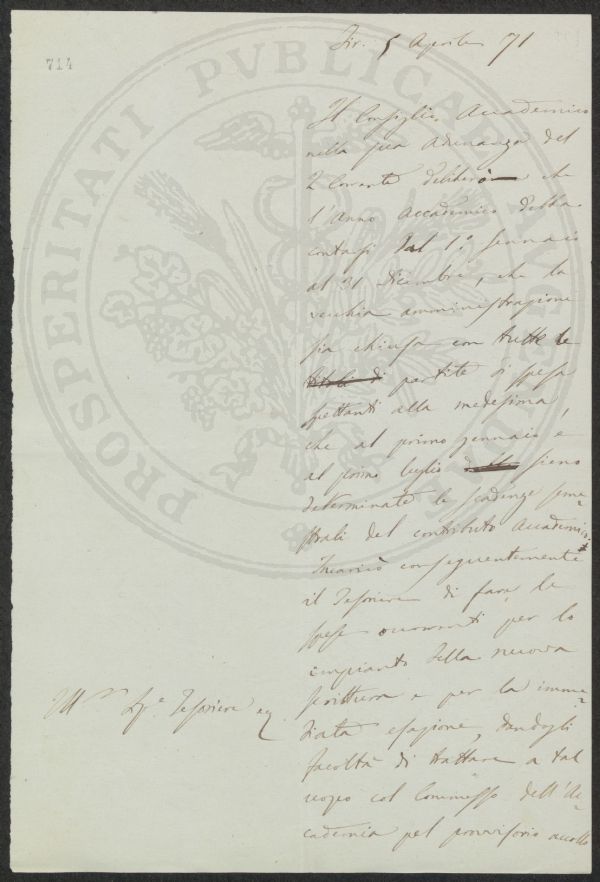 714
Fir. 5 Aprile 71
Il Consiglio Accademico
nella sua Adunanza del
2 Corrente deliberò che
l'Anno Accademico debba
contarsi dal 1º Gennaio
al 31 Dicembre, che la
vecchia amministrazione
sia chiusa con tutte le
partite di spesa
spettanti alla medesima,
che al primo Gennaio e
al primo luglio sieno
determinate le scadenze seme=
strali del contributo Accademico.
Incaricò conseguentemente
il Tesoriere di fare le
spese occorrenti per lo
impianto della nuova
scrittura e per la imme=
diata esazione, dandogli
facoltà di trattare a tal
uopo col Commesso dell'Ac=
cademia pel provvisorio accollo
Ill.mo Sig.e Tesoriere
PROSPERITATI PVBLICAE AVGENDAE